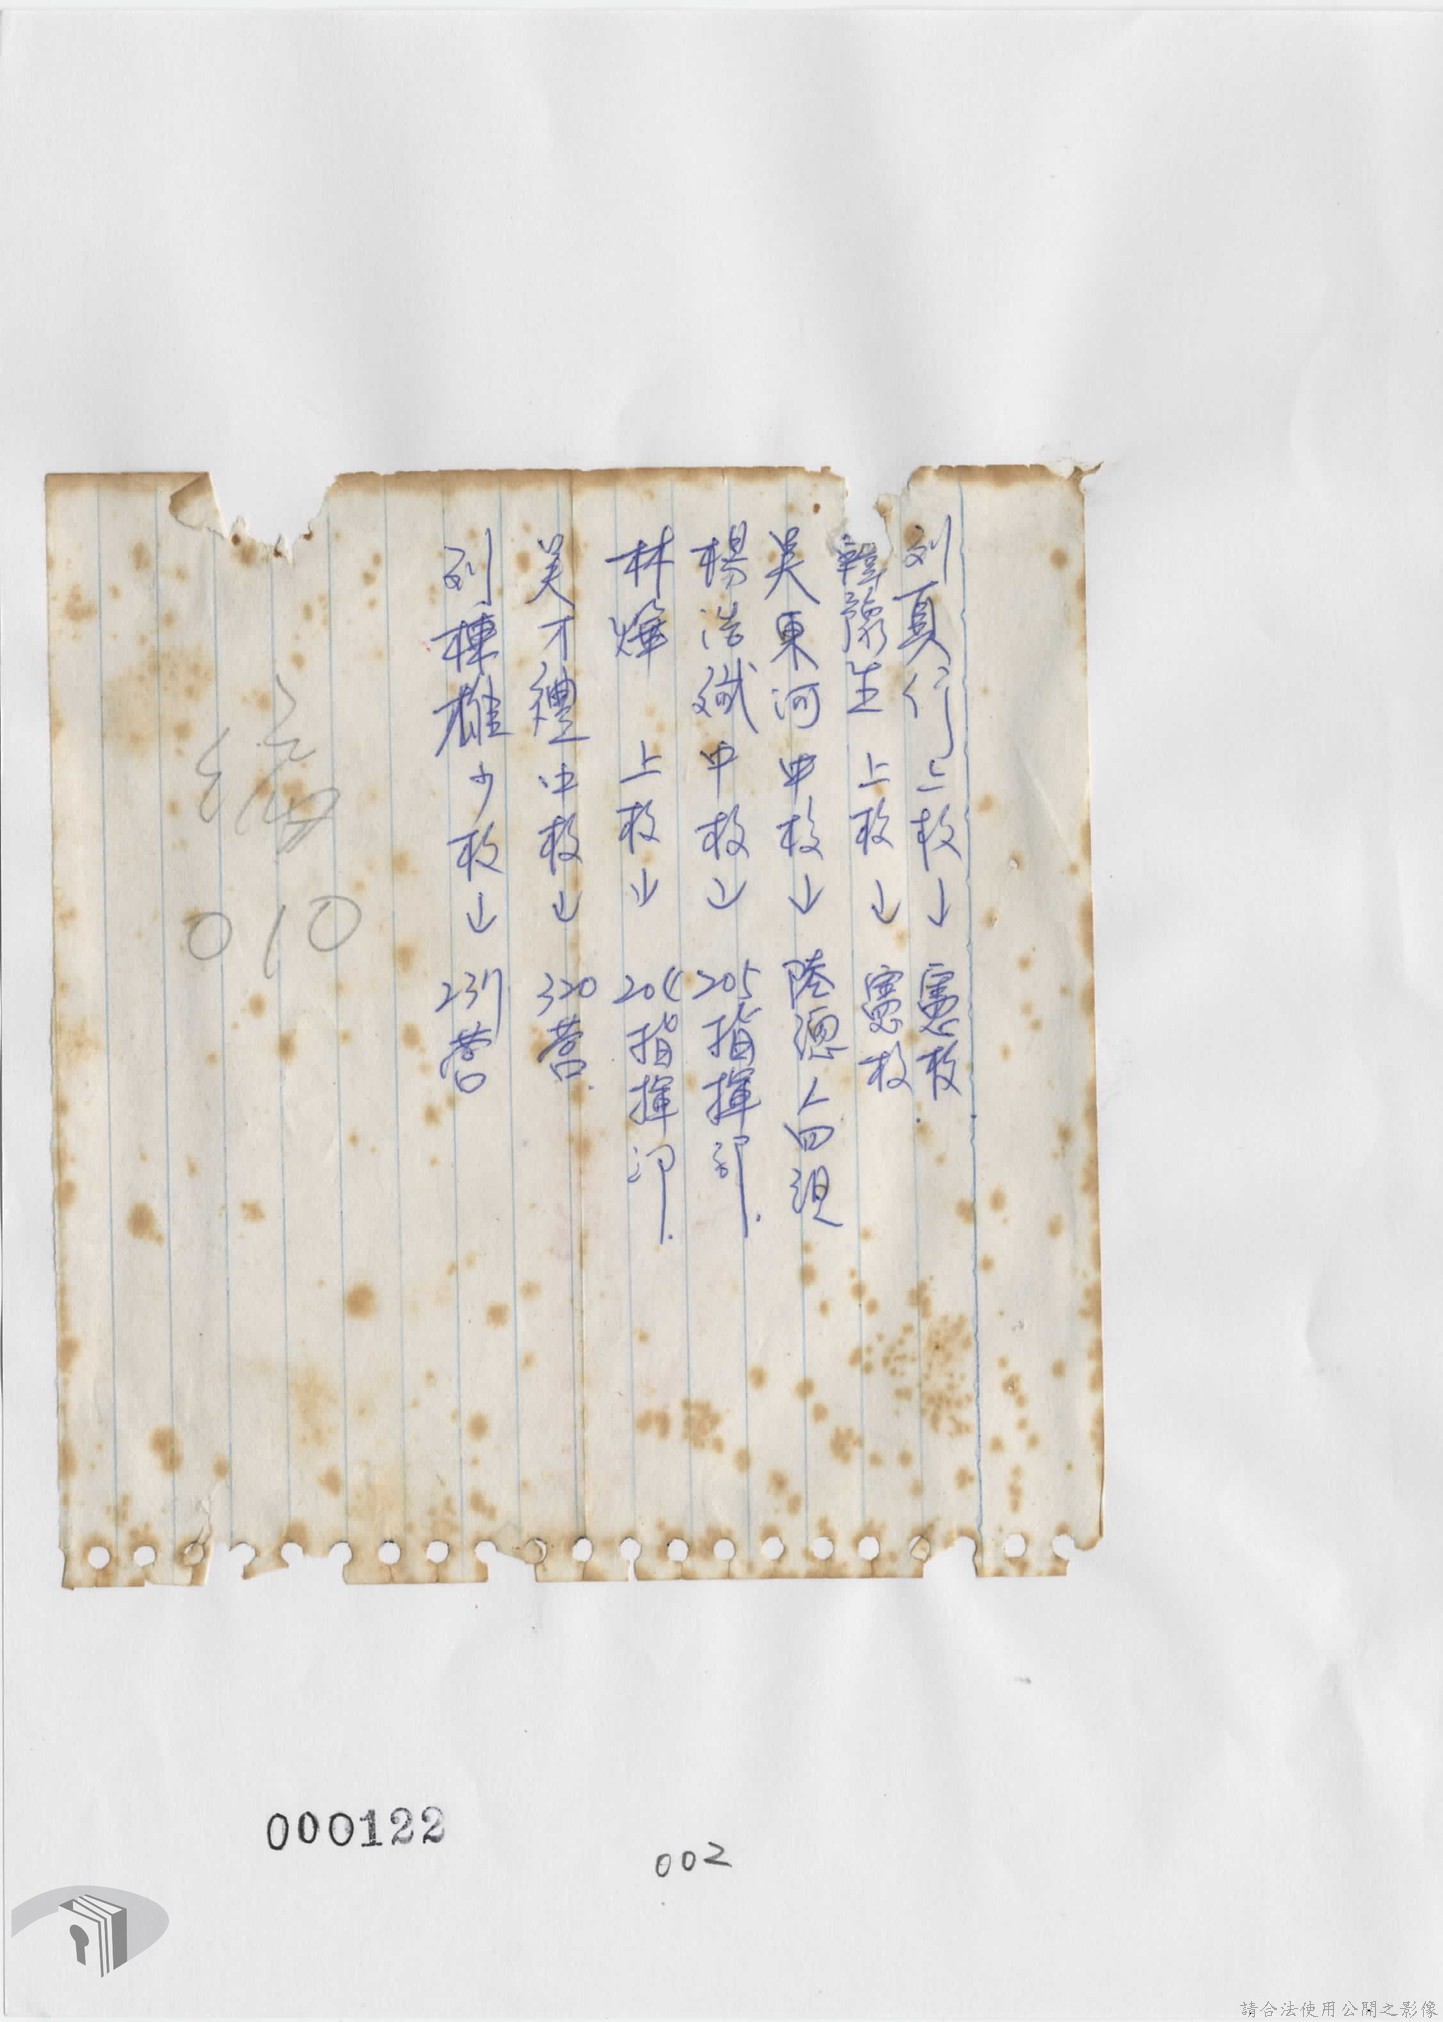 刘夏行上校↓憲校
韓豫生 上校↓憲校
吴東河中校↓陸總人四組
楊浩 中校↓205指揮部.
林燁 上校↓204指揮部.
吴才禮中校↓320营.
刘棟雄少校↓231营
010
000122
002
請合法使用公開之影像